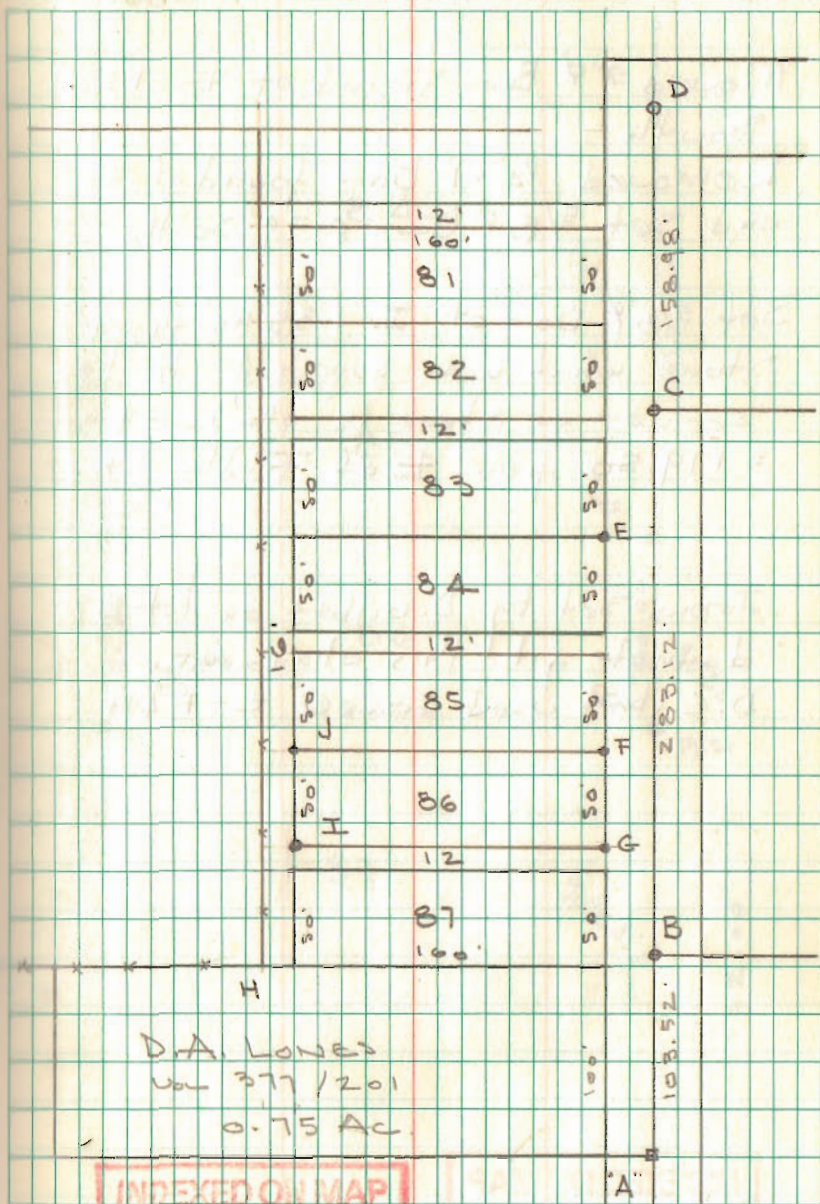 D
12'
160'
50' 81 50'
158.98'
50' 82 50'
C
12'
50' 83 50'
E
50' 84 50'
16' 12'
283.12'
50' 85 50'
L F
50' 86 50'
I G
12
50' 87 50'
160'
B
H
D.A. LONES
VOL 377/201
0.75 AC.
100'
103.52'
INDEXED ON MAP
"A"